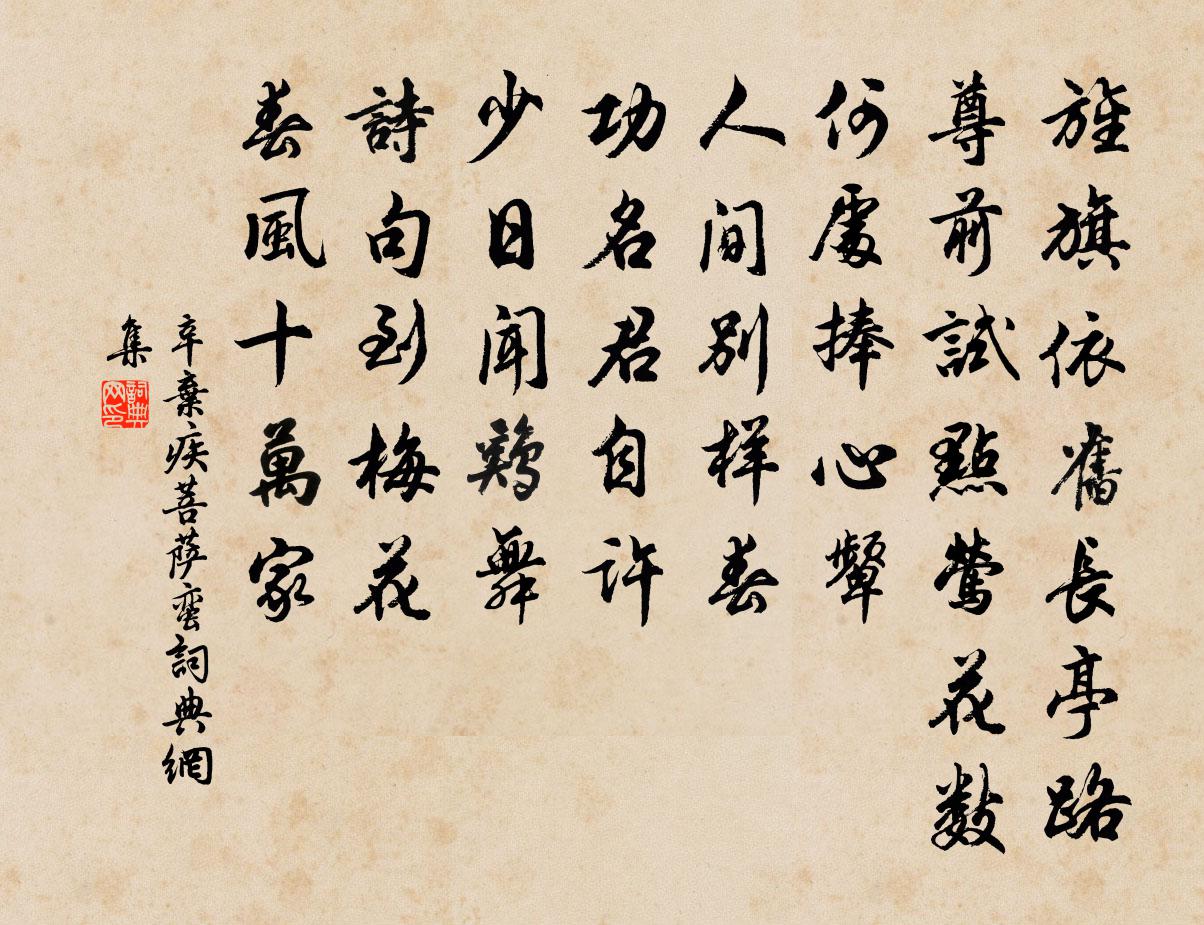 旌旗依舊長亭路
尊前試點鶯花數
何處捧心顰
人间别样春
功名君自许
少日闻鷄舞
詩句到梅花
春風十萬家
辛棄疾菩萨蛮詞典網
集
詞典网印